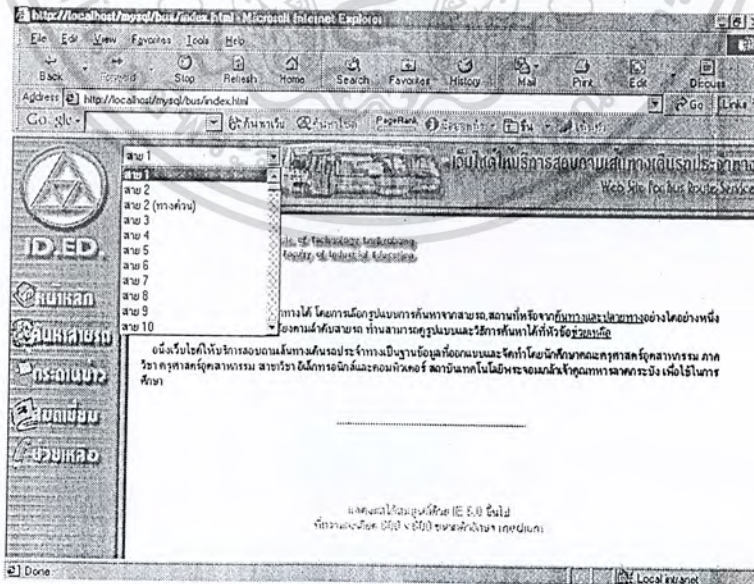 http://localhost/mysql/bus/index.html - Microsoft Internet Explorer
File Edit View Favorites Tools Help
Back Forward Stop Refresh Home Search Favorites History Mail Print Edit Discuss
Address http://localhost/mysql/bus/index.html Go Links
Google ค้นหาเว็บ PageRank
สาย 1
สาย 1
สาย 2
สาย 2 (ทางด่วน)
สาย 3
สาย 4
สาย 5
สาย 6
สาย 7
สาย 8
สาย 9
สาย 10
เว็บไซต์ให้บริการสอบถามเส้นทางเดินรถประจำทาง
Web Site For Bus Route Service
of Technology Ladkrabang
Faculty of Industrial Education
ID.ED.
ค้นหาสายรถ
กระดานข่าว
สมุดเยี่ยม
ช่วยเหลือ
ทางได้ โดยการเลือกรูปแบบการค้นหาจากสายรถ,สถานที่หรือจากต้นทางและปลายทางอย่างใดอย่างหนึ่ง
เรียงตามลำดับสายรถ ท่านสามารถดูรูปแบบและวิธีการค้นหาได้ที่หัวข้อช่วยเหลือ
อนึ่งเว็บไซต์ให้บริการสอบถามเส้นทางเดินรถประจำทางเป็นฐานข้อมูลที่ออกแบบและจัดทำโดยนักศึกษาคณะครุศาสตร์อุตสาหกรรม ภาค
วิชา ครุศาสตร์อุตสาหกรรม สาขาวิชา อิเล็กทรอนิกส์และคอมพิวเตอร์ สถาบันเทคโนโลยีพระจอมเกล้าเจ้าคุณทหารลาดกระบัง เพื่อใช้ในการ
ศึกษา
แสดงผลได้สมบูรณ์ด้วย IE 5.0 ขึ้นไป
ที่ความละเอียด 800 x 600 ขนาดตัวอักษร medium
Done Local intranet